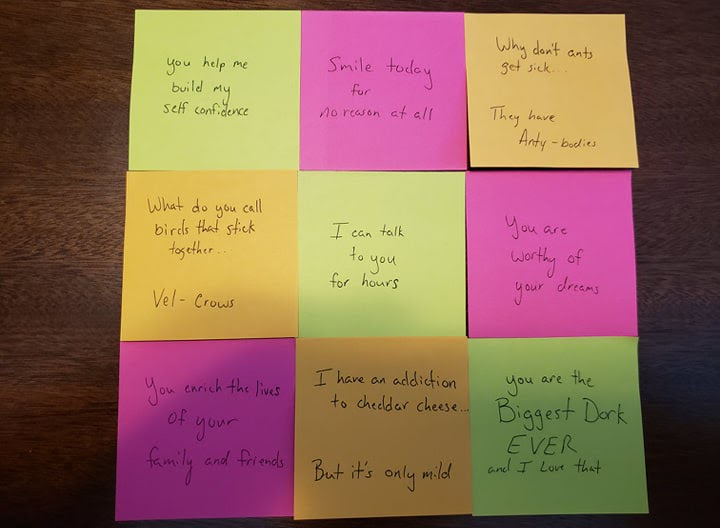 you help me
build my
self confidence
Smile today
for
no reason at all
Why don't ants
get sick...
They have
Anty-bodies
What do you call
birds that stick
together...
Vel-Crows
I can talk
to you
for hours
You are
worthy of
your dreams
You enrich the lives
Of your
family and friends
I have an addiction
to cheddar cheese...
But it's only mild
you are the
Biggest Dork
EVER
and I Love that